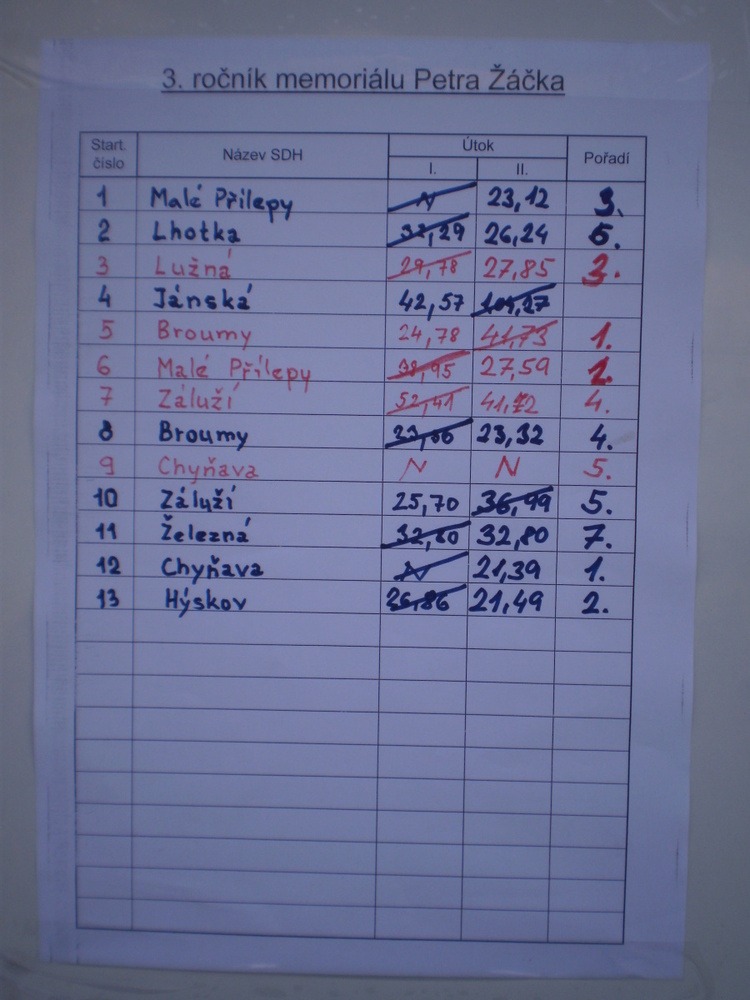 3. ročník memoriálu Petra Žáčka
Start. číslo Název SDH Útok Pořadí
I. II.
1 Malé Přílepy N 23,12 3.
2 Lhotka 32,29 26,24 6.
3 Lužná 29,78 27,85 3.
4 Jánská 42,57
5 Broumy 24,78 41,73 1.
6 Malé Přílepy 38,95 27,59 2.
7 Záluží 52,41 41,72 4.
8 Broumy 23,32 4.
9 Chyňava N N 5.
10 Záluží 25,70 36,99 5.
11 Železná 32,80 7.
12 Chyňava N 21,39 1.
13 Hýskov 26,86 21,49 2.